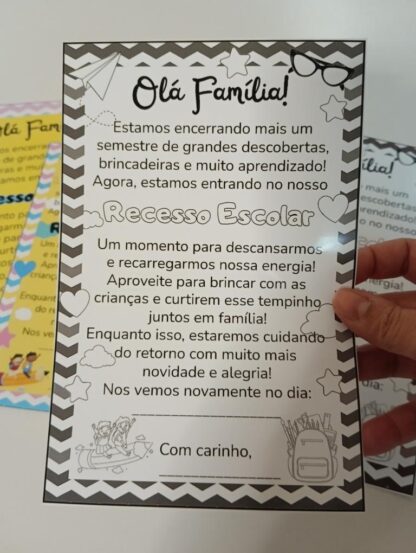 Olá Família!
Estamos encerrando mais um
semestre de grandes descobertas,
brincadeiras e muito aprendizado!
Agora, estamos entrando no nosso
Recesso Escolar
Um momento para descansarmos
e recarregarmos nossa energia!
Aproveite para brincar com as
crianças e curtirem esse tempinho
juntos em família!
Enquanto isso, estaremos cuidando
do retorno com muito mais
novidade e alegria!
Nos vemos novamente no dia:
Com carinho,
Olá Fam
encerrando
Enquant
Nos vem
mília!
mais um
descobertas,
aprendizado!
no nosso
dia: